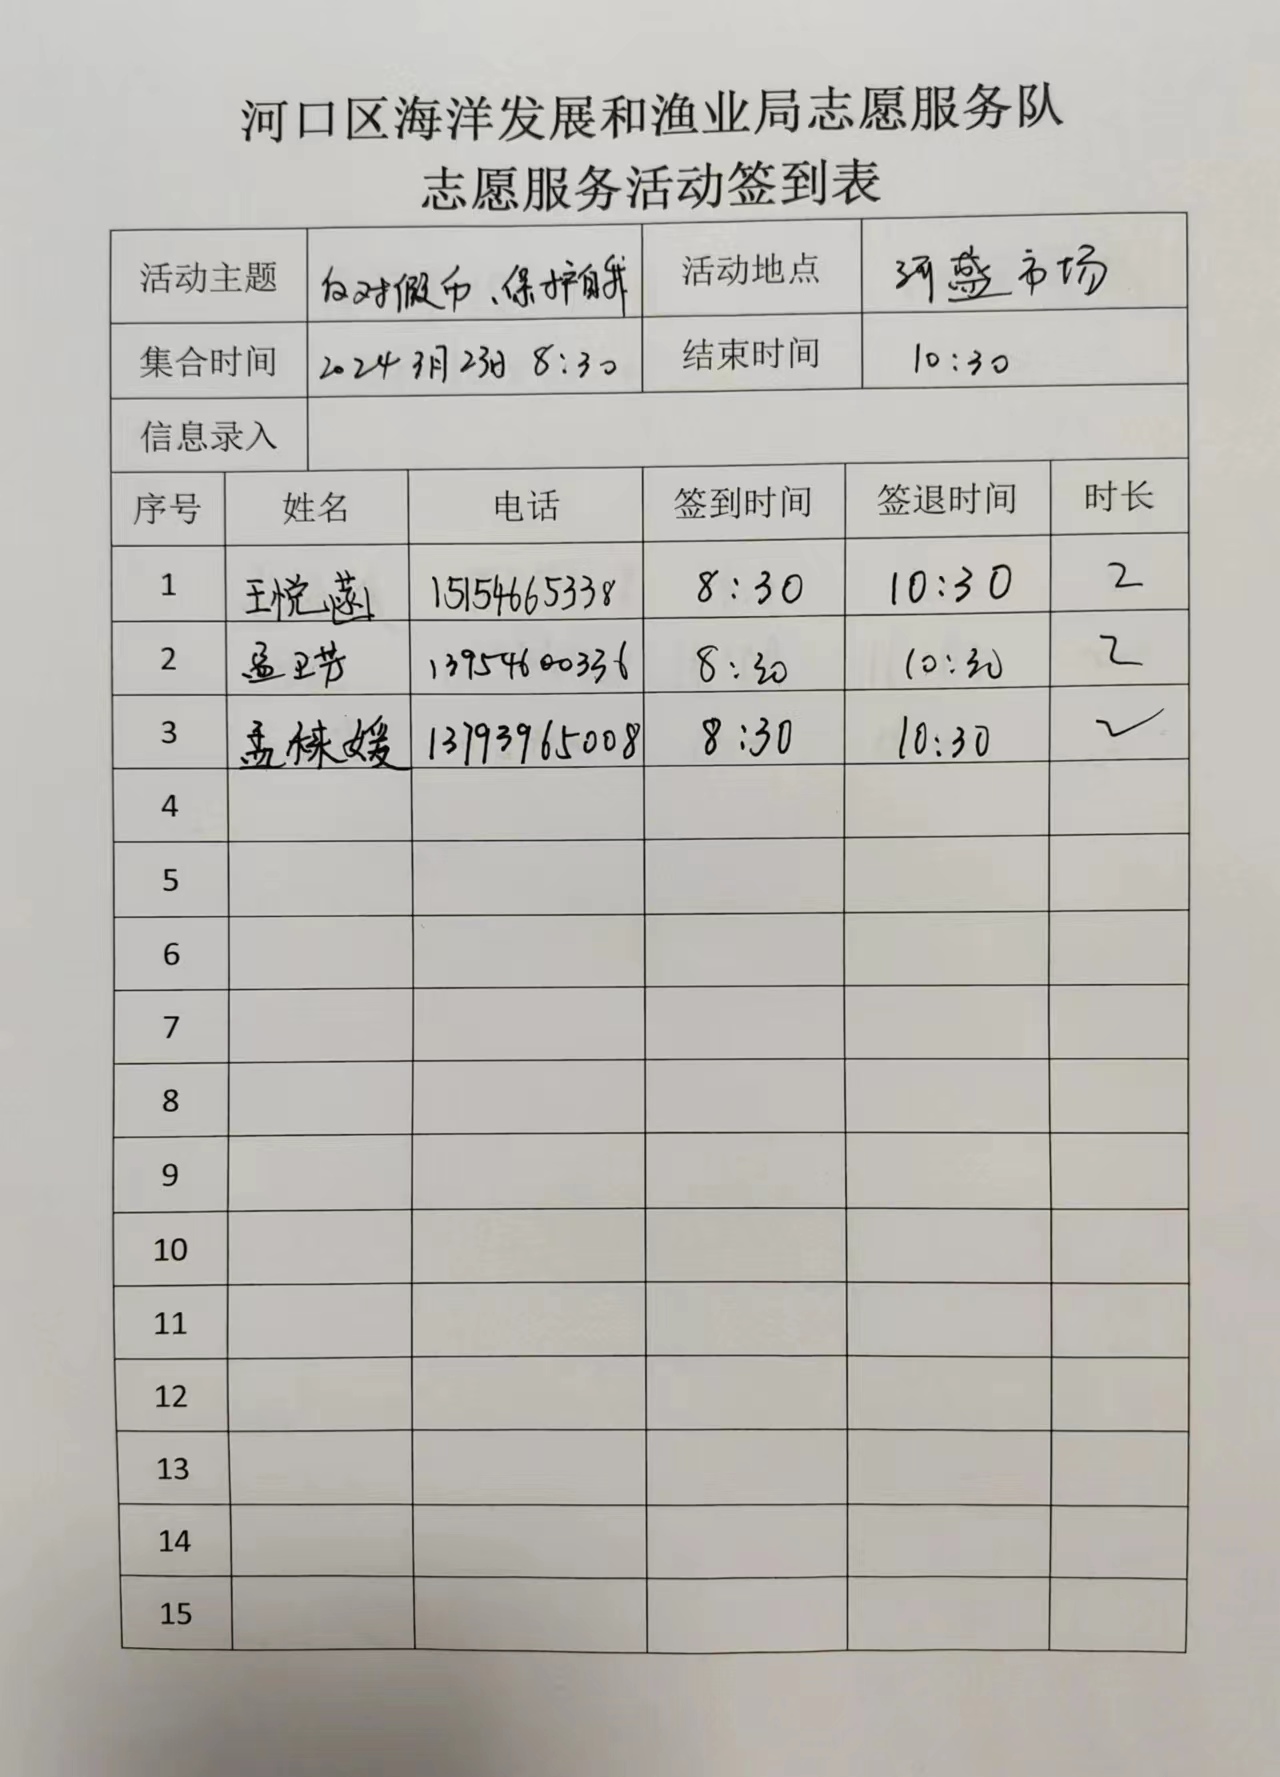 河口区海洋发展和渔业局志愿服务队
志愿服务活动签到表
活动主题 反对假币、保护自我 活动地点 河盛市场
集合时间 2024 3月23日 8:30 结束时间 10:30
信息录入
序号 姓名 电话 签到时间 签退时间 时长
1 王悦菡 15154665338 8:30 10:30 2
2 孟卫芳 13954600336 8:30 10:30 2
3 孟 媛 13793965008 8:30 10:30 2
4
5
6
7
8
9
10
11
12
13
14
15